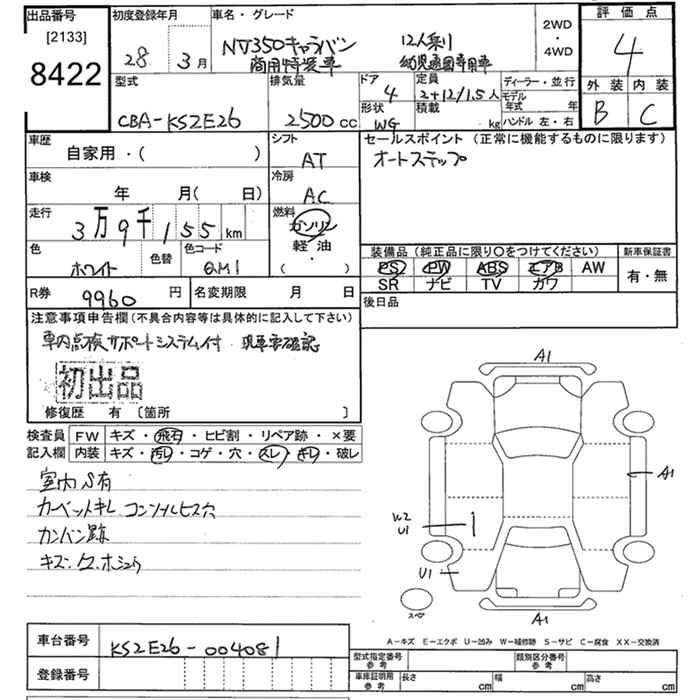 出品番号 [2133] 8422
初度登録年月 28. 3月
車名・グレード NV350キャラバン 12人乗り
商用特装車 幼児通園専用車
2WD・4WD
評価点 4
外装 内装
B C
型式 CBA-KS2E26
排気量 2500cc
ドア 4
定員 2+12/1.5人
形状 WG
積載 kg
ディーラー・並行
モデル年式 年
ハンドル 左・右
車歴 自家用・( )
シフト AT
セールスポイント(正常に機能するものに限ります)
オートステップ
車検 年 月( 日)
冷房 AC
走行 3万9千155km
燃料 ガソリン
軽油
( ・ )
色 ホワイト
色替
色コード QM1
装備品(純正品に限り○をつけてください)
PS PW ABS エアB AW
SR ナビ TV カワ
新車保証書 有・無
R券 9960円
名変期限 月 日
後日品
注意事項申告欄(不具合内容等は具体的に記入して下さい)
車内点検サポートシステム付 現車要確認
初出品
修復歴 有 〔箇所 〕
検査員記入欄
FW キズ・飛石・ヒビ割・リペア跡・×要
内装 キズ・汚レ・コゲ・穴・スレ・キレ・破レ
室内S有
カーペットキレ コンソールビス穴
カンバン跡
A1
A1
W2
U1
U1
スペア
A1
A-キズ E-エクボ U-凹み W-補修跡 S-サビ C-腐食 XX-交換済
車台番号 KS2E26-004081
登録番号
型式指定番号 参考
類別区分番号 参考
車庫証明用 参考
長さ cm 幅 cm 高さ cm